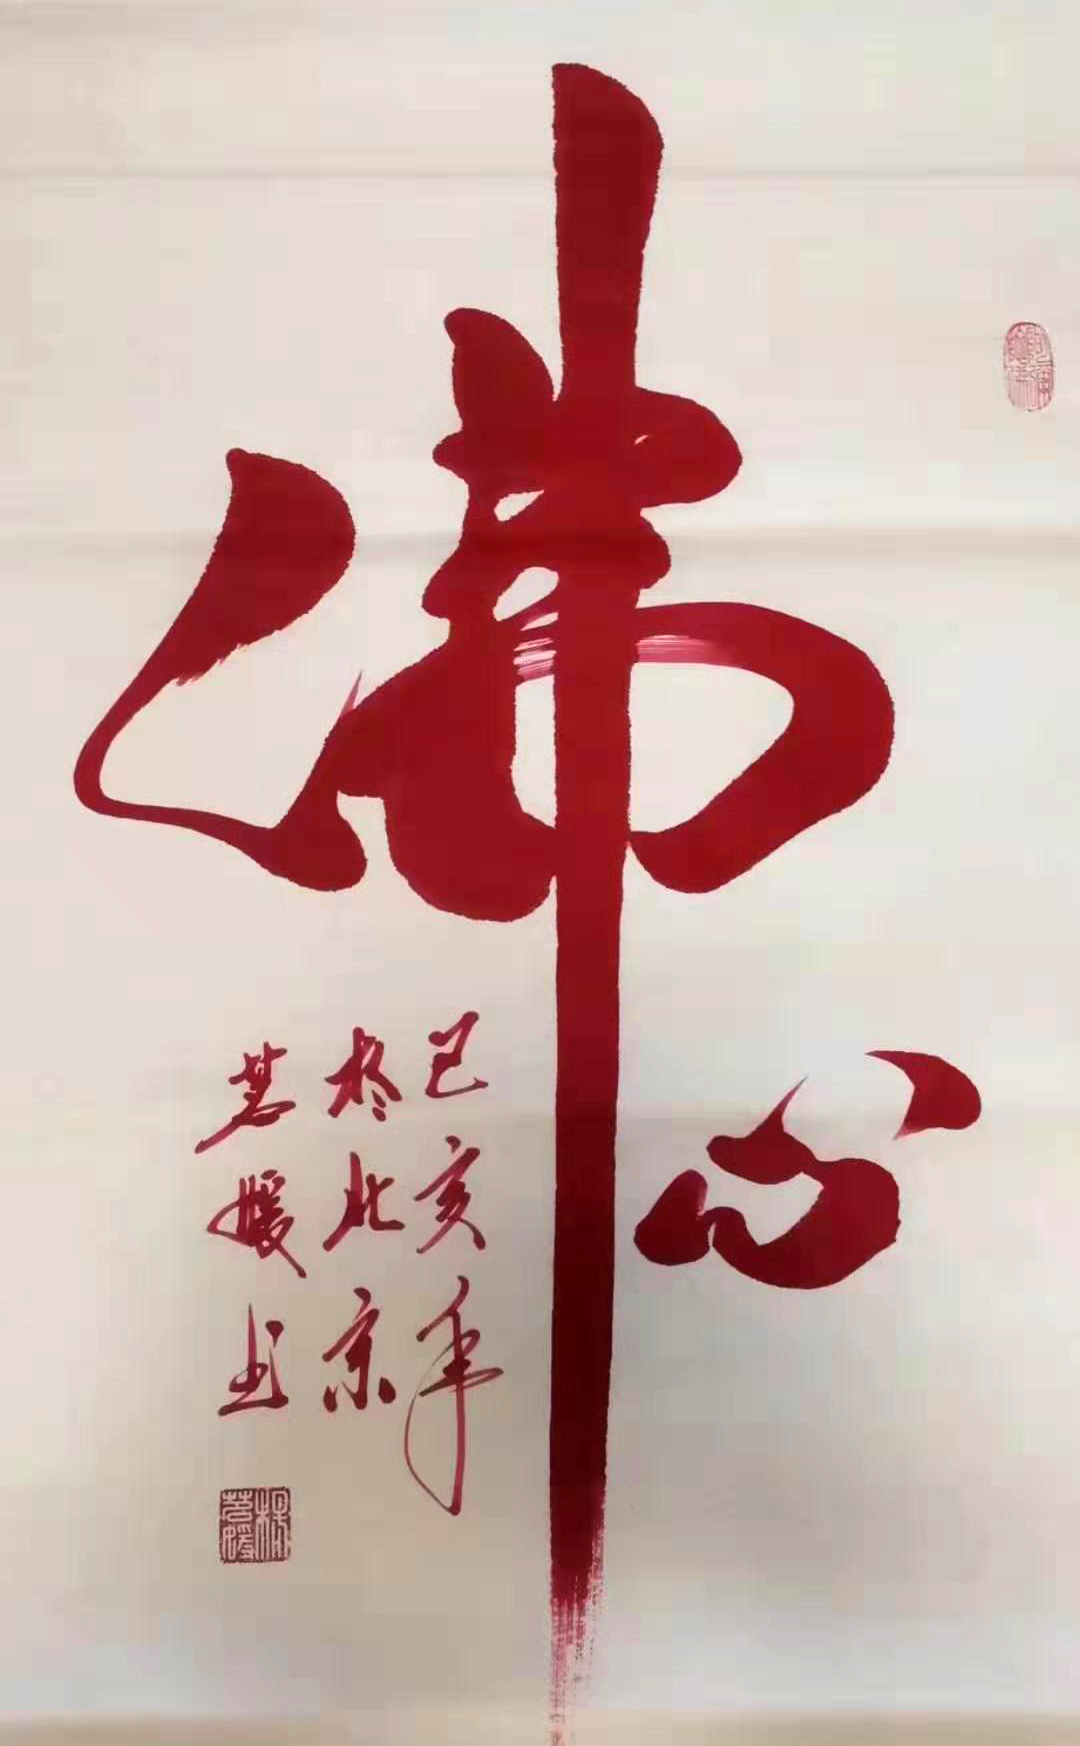 佛心
己亥年
於北京
茗媛书